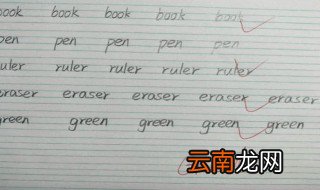 book book book book book
pen pen pen pen pen
ruler ruler ruler ruler ruler
eraser eraser eraser eraser eraser
green green green green green
云南龙网